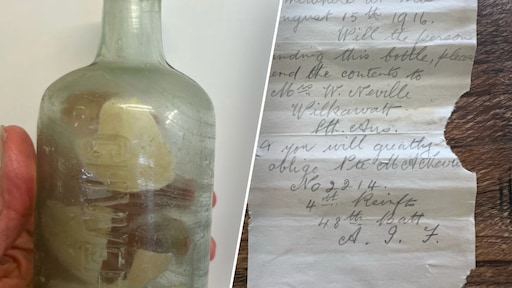 August 15th 1916.
Will the person
finding this bottle, please
send the contents to
Mrs W. Neville
Wilkawatt
Sth. Aus.
& you will greatly
oblige Pte
No 2214
4th Reinft
48th Batt
A. I. F.